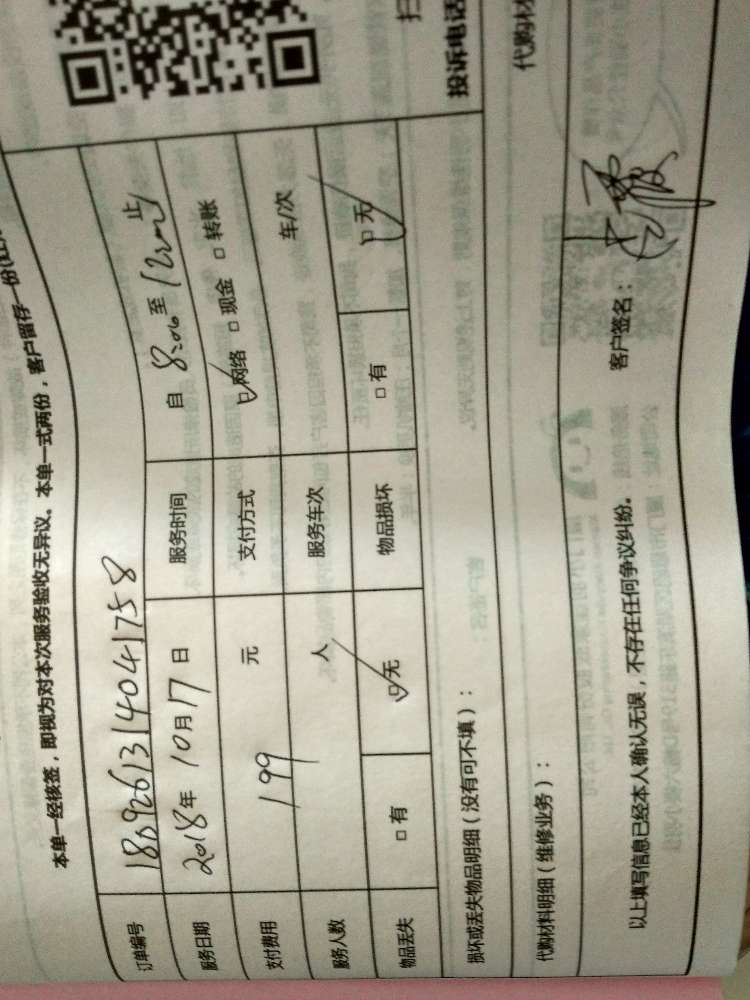 本单一经核签，即视为对本次服务验收无异议。本单一式两份，客户留存一份
订单编号 1809261314041758
服务日期 2018年10月17日 服务时间 自 8:00 至 12:00 止
支付费用 199 元 支付方式 ☑网络 □现金 □转账
服务人数 人 服务车次 车/次
物品丢失 □有 ☑无 物品损坏 □有 ☑无
扫
投诉电话
损坏或丢失物品明细（没有可不填）：
代购材料明细（维修业务）：
代购材
以上填写信息已经本人确认无误，不存在任何争议纠纷。 客户签名：